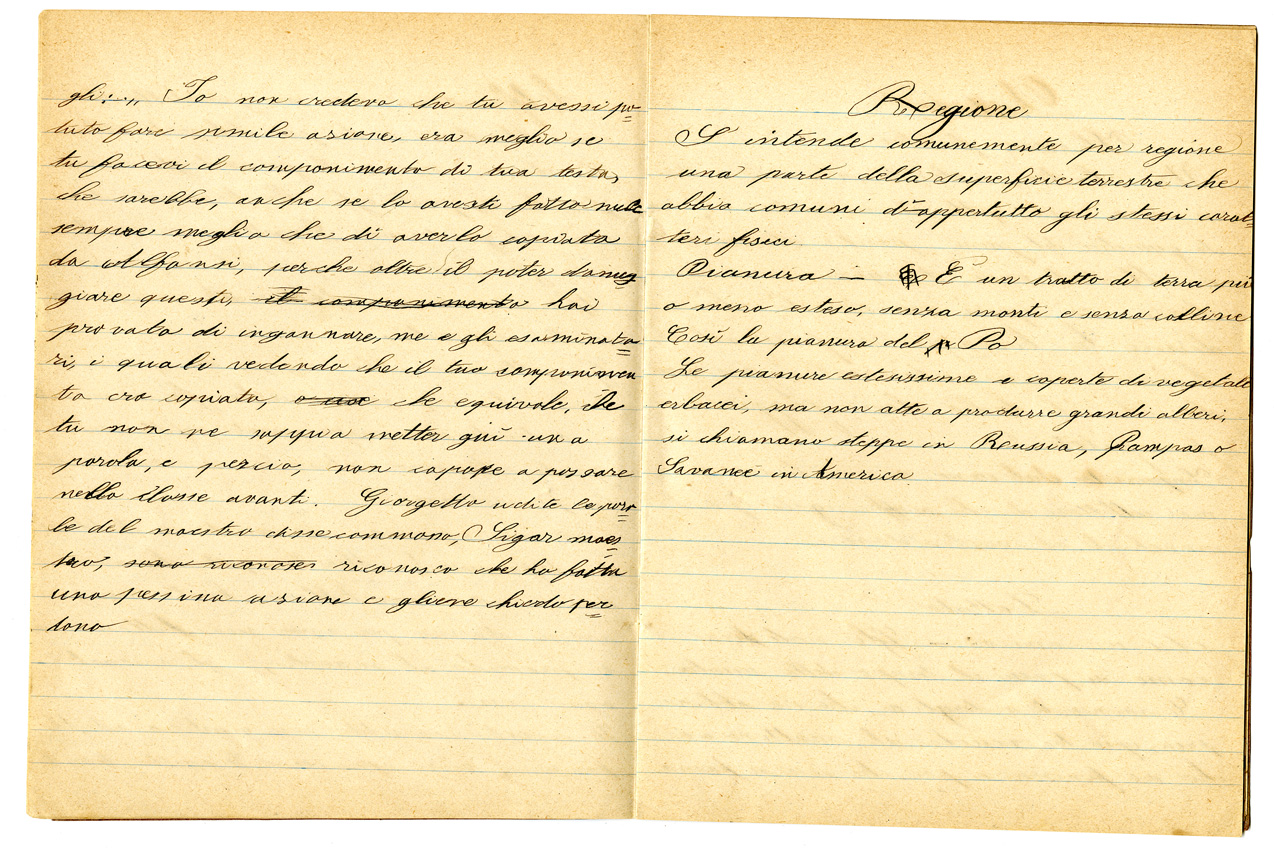 gli: „ Io non credevo che tu avessi po=
tuto fare simile azione, era meglio se
tu facevi il componimento di tua testa,
che sarebbe, anche se lo avesti fatto male
sempre meglio che di averlo copiato
da Alfonsi, perche oltre il poter danneg
giare questi, il componimento hai
provato di ingannare, me e gli esaminato=
ri, i quali vedendo che il tuo componimen
to era copiato, che equivale, che
tu non ne sappia metter giù una
parola, e percio, non capace a passare
nella classe avanti. Giorgetto udite le paro=
le del maestro disse commosso, Sigor maes=
tro, sono riconosci riconosco che ho fatto
una pessima azione e gliene chiedo per=
dono
Regione
S intende comunemente per regione
una parte della superficie terrestre che
abbia comuni d'appertutto gli stessi carat=
teri fisici
Pianura — È un tratto di terra più
o meno esteso, senza monti e senza colline
Così la pianura del Po
Le pianure estesissime e coperte di vegetali
erbacei, ma non atte a produrre grandi alberi,
si chiamano steppe in Russia, Pampas o
Savanee in America